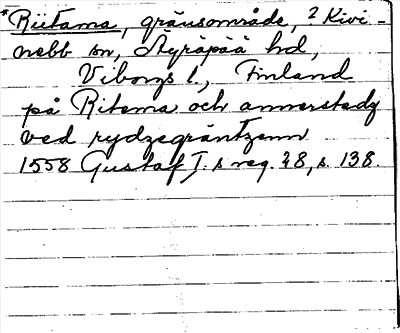 *Riitama, gränsområde, ? Kivi-
nebb sn, Äyräpää hd,
Viborgs l., Finland
på Ritama och annerstadz
ved rydzegräntzenn
1558 Gustaf I:s reg. 28, s. 138.